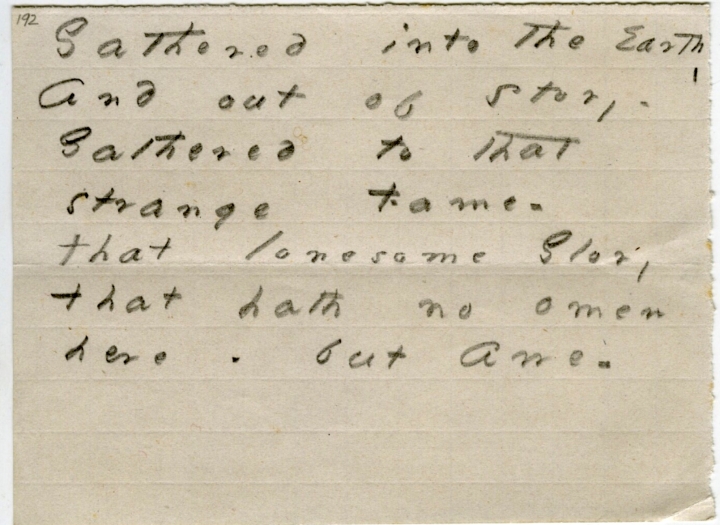 192
Gathered into the Earth,
And out of story -
Gathered to that
strange Fame -
that lonesome Glory
that hath no omen
here - but Awe -